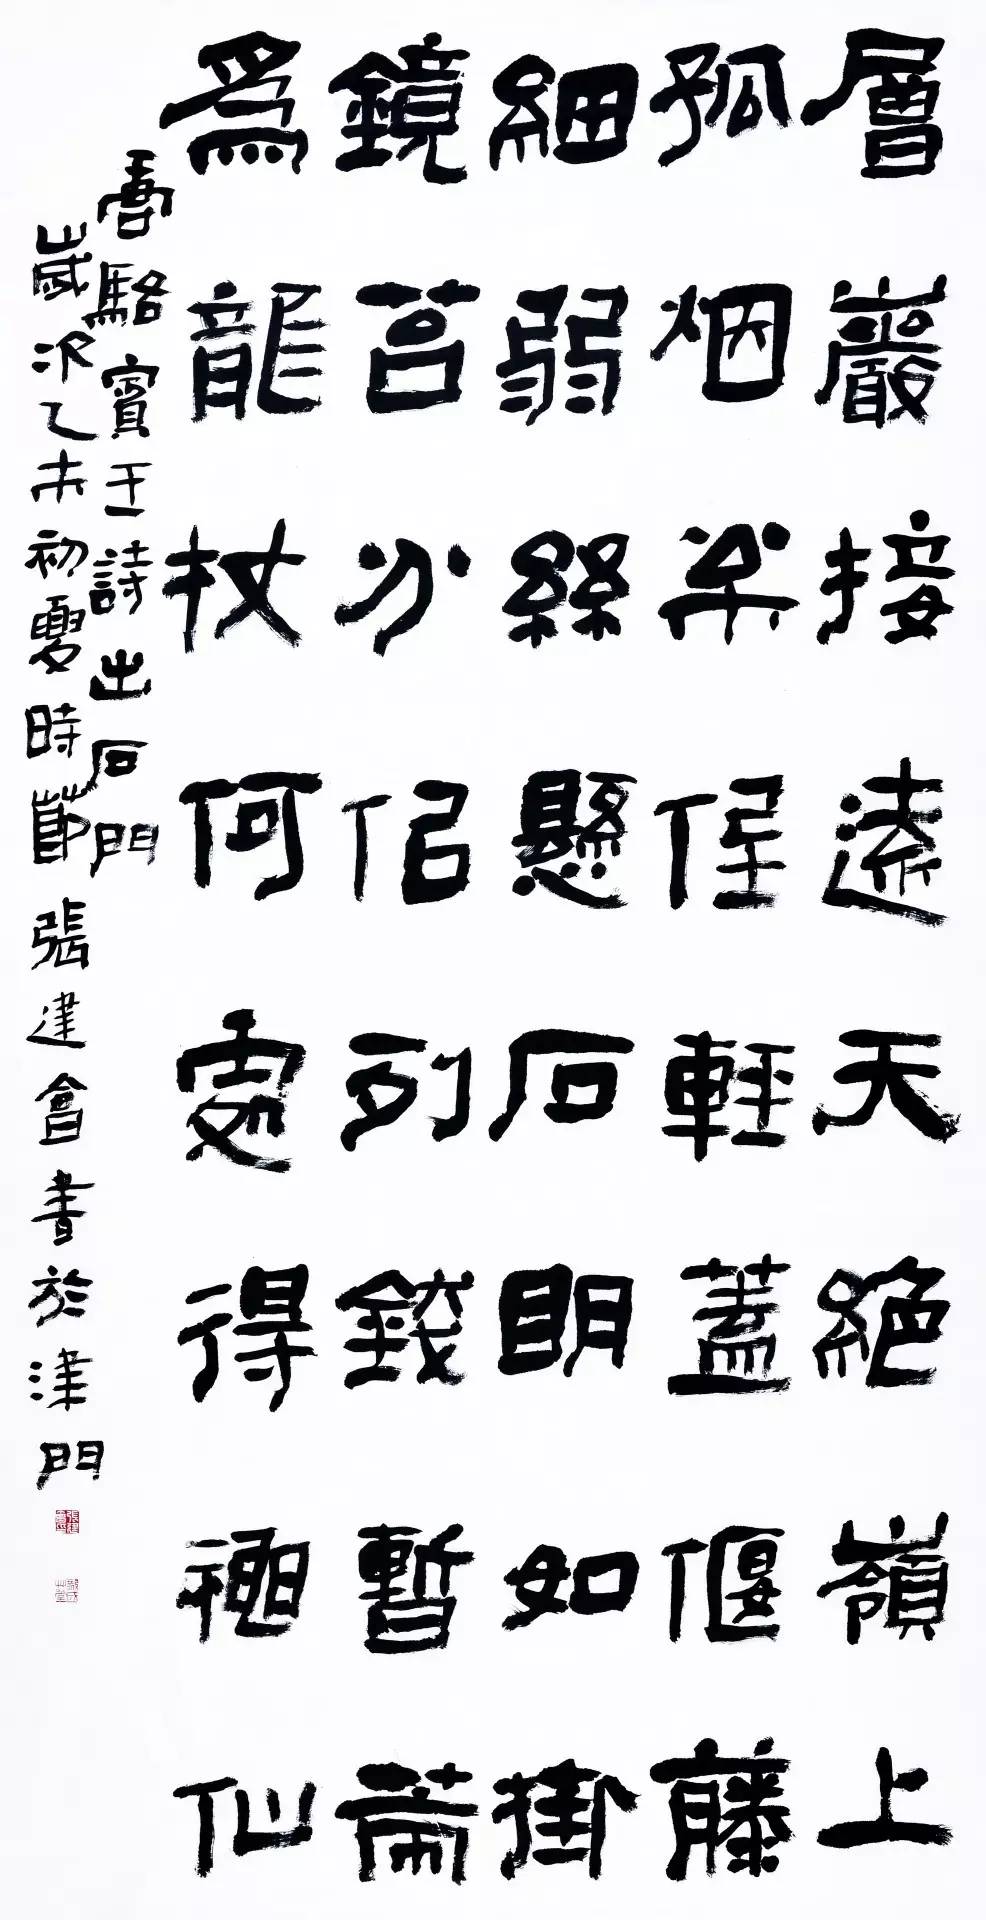 層巖接遠天絕嶺上
孤烟枀低輕蓋偃藤
細弱絲懸石眀如掛
鏡苔分似列錢暫策
爲龍杖何處得神仙
唐駱賓王詩出石門
歲次乙未初夏時節張建會書於津門